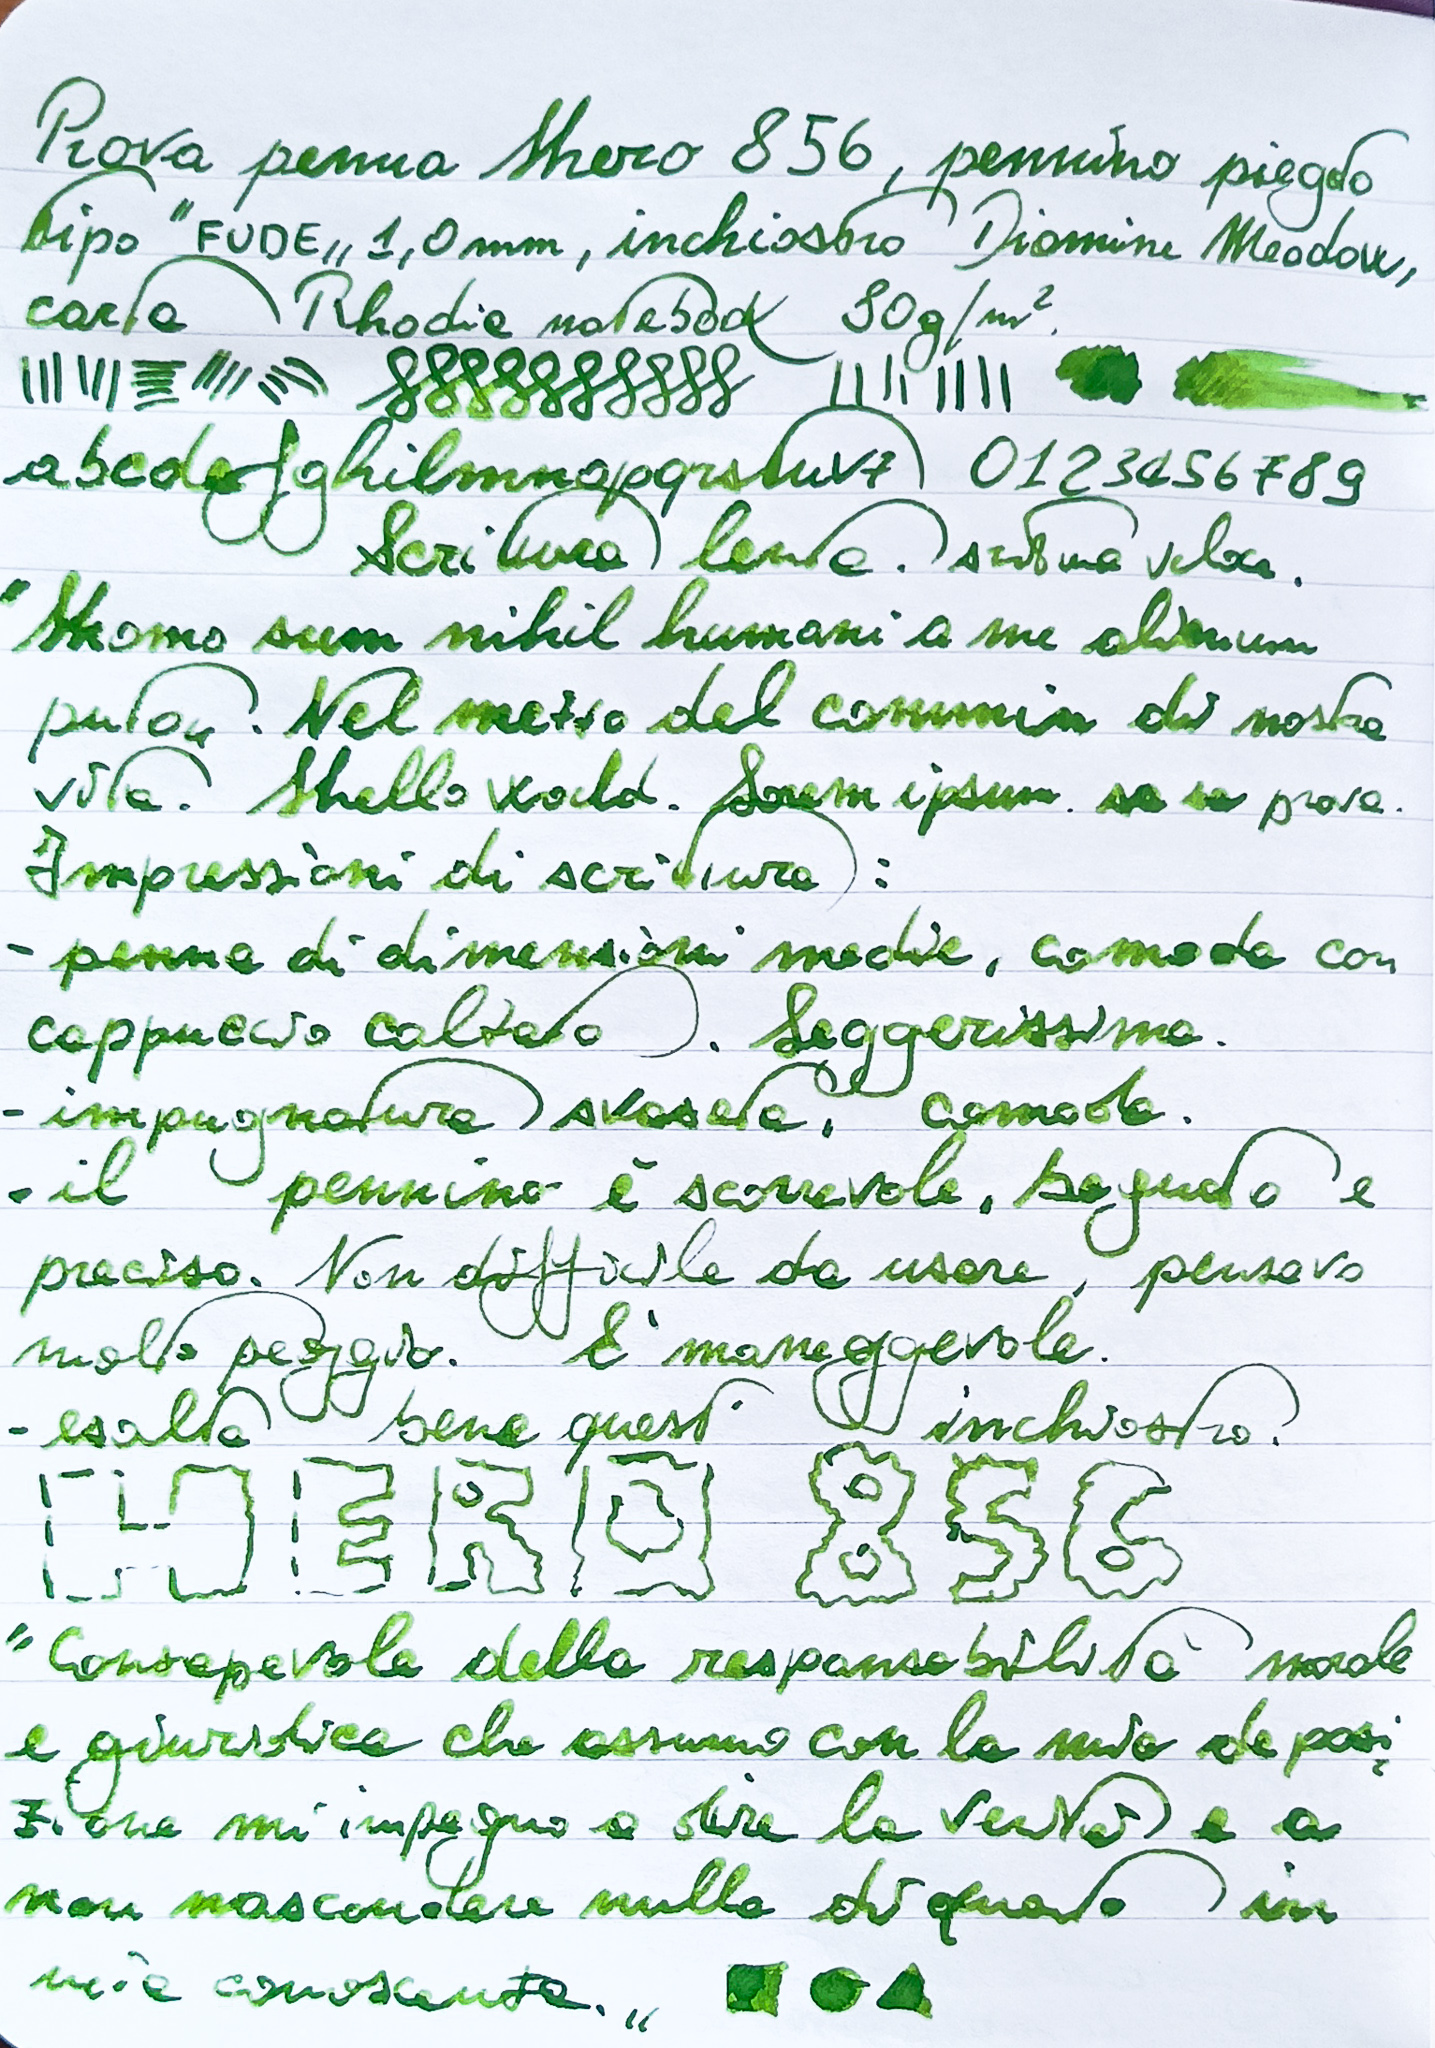 Prova penna Hero 856, pennino piegato
tipo "FUDE„ 1,0mm, inchiostro Diamine Meadow,
carta Rhodia notebook 90g/m².
abcdefghilmnopqrstuvz 0123456789
Scrittura lenta. scrittura veloce.
"Homo sum nihil humani a me alienum
puto„. Nel mezzo del cammin di nostra
vita. Hello world. Lorem ipsum. sa sa prova.
Impressioni di scrittura:
- penna di dimensioni medie, comoda con
cappuccio calzato. Leggerissima.
- impugnatura svasata, comoda.
- il pennino è scorrevole, bagnato e
preciso. Non difficile da usare, pensavo
molto peggio. È maneggevole.
- esalta bene quest' inchiostro.
HERO 856
"Consapevole della responsabilità morale
e giuridica che assumo con la mia deposi
zione mi impegno a dire la verità e a
non nascondere nulla di quanto in
mia conoscenza.„